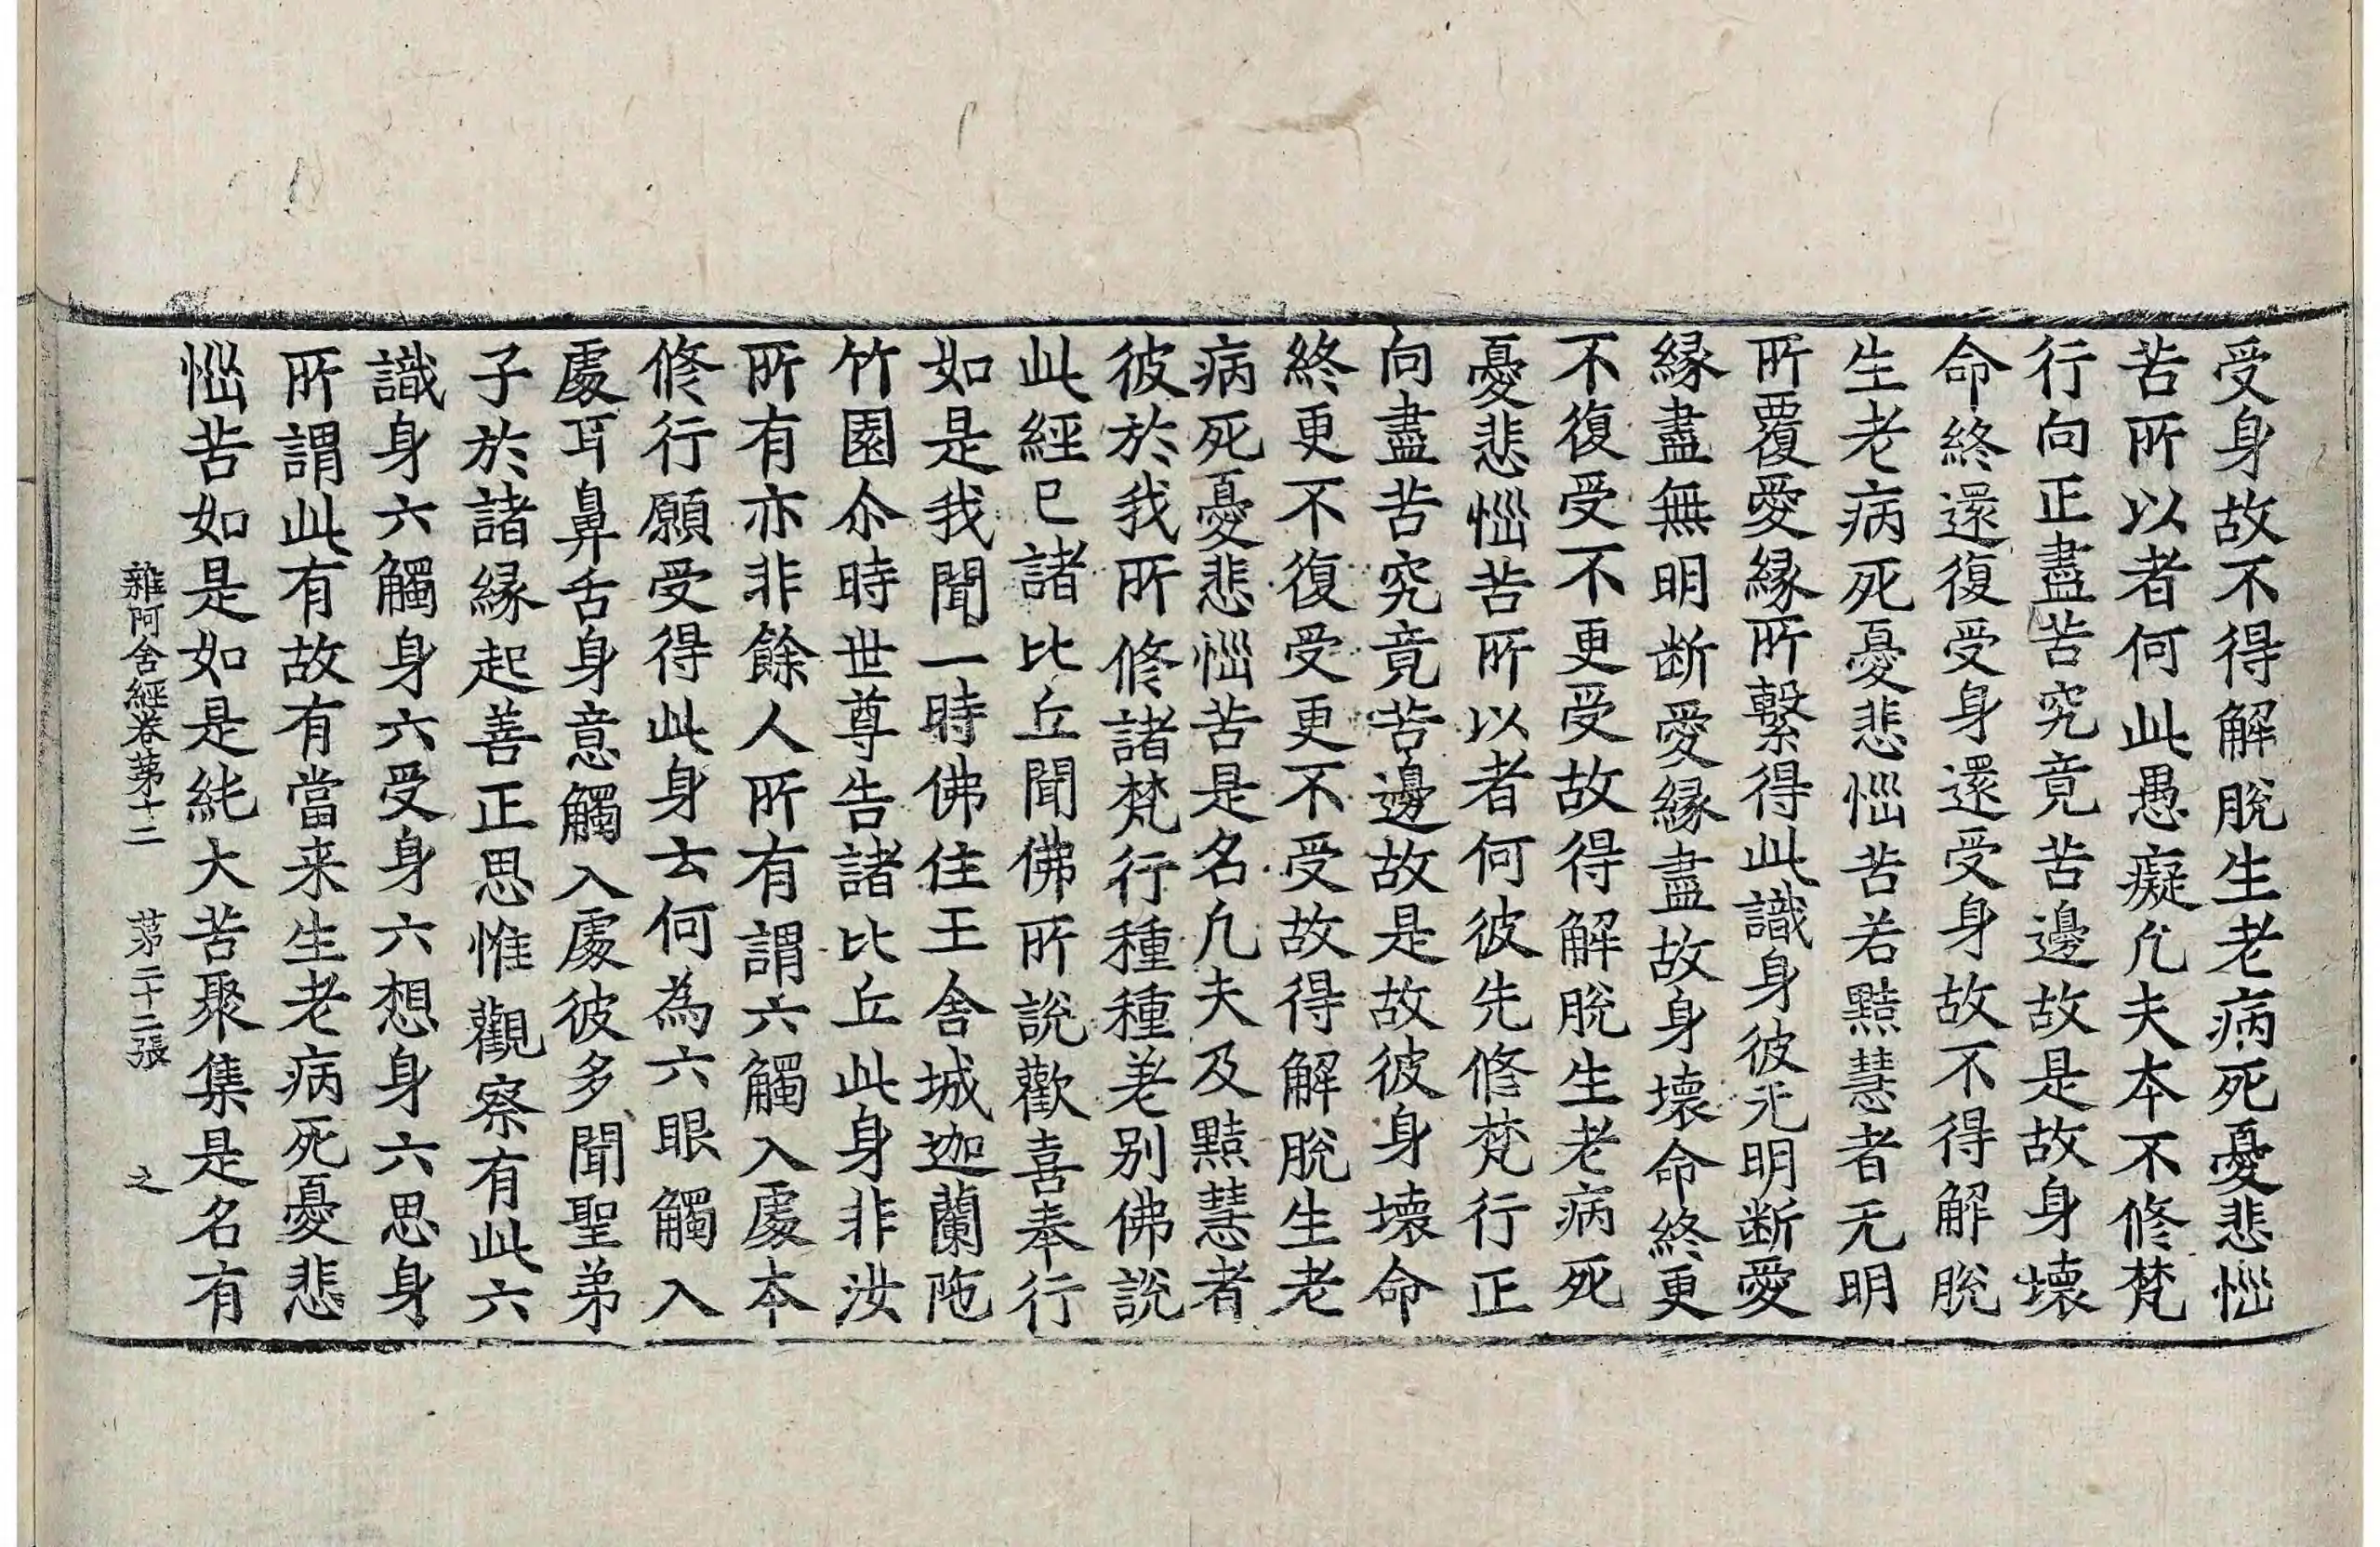 受身故不得解脫生老病死憂悲惱
苦所以者何此愚癡凡夫本不修梵
行向正盡苦究竟苦邊故是故身壞
命終還復受身還受身故不得解脫
生老病死憂悲惱苦若黠慧者无明
所覆愛緣所繫得此識身彼无明断愛
緣盡無明断愛緣盡故身壞命終更
不復受不更受故得解脫生老病死
憂悲惱苦所以者何彼先修梵行正
向盡苦究竟苦邊故是故彼身壞命
終更不復受更不受故得解脫生老
病死憂悲惱苦是名凡夫及黠慧者
彼於我所修諸梵行種種差别佛說
此經已諸比丘聞佛所說歡喜奉行
如是我聞一時佛住王舍城迦蘭陁
竹園尒時世尊告諸比丘此身非汝
所有亦非餘人所有謂六觸入處本
修行願受得此身云何為六眼觸入
處耳鼻舌身意觸入處彼多聞聖弟
子於諸緣起善正思惟觀察有此六
識身六觸身六受身六想身六思身
所謂此有故有當来生老病死憂悲
惱苦如是如是純大苦聚集是名有
雜阿含經卷第十二 第二十二張 之